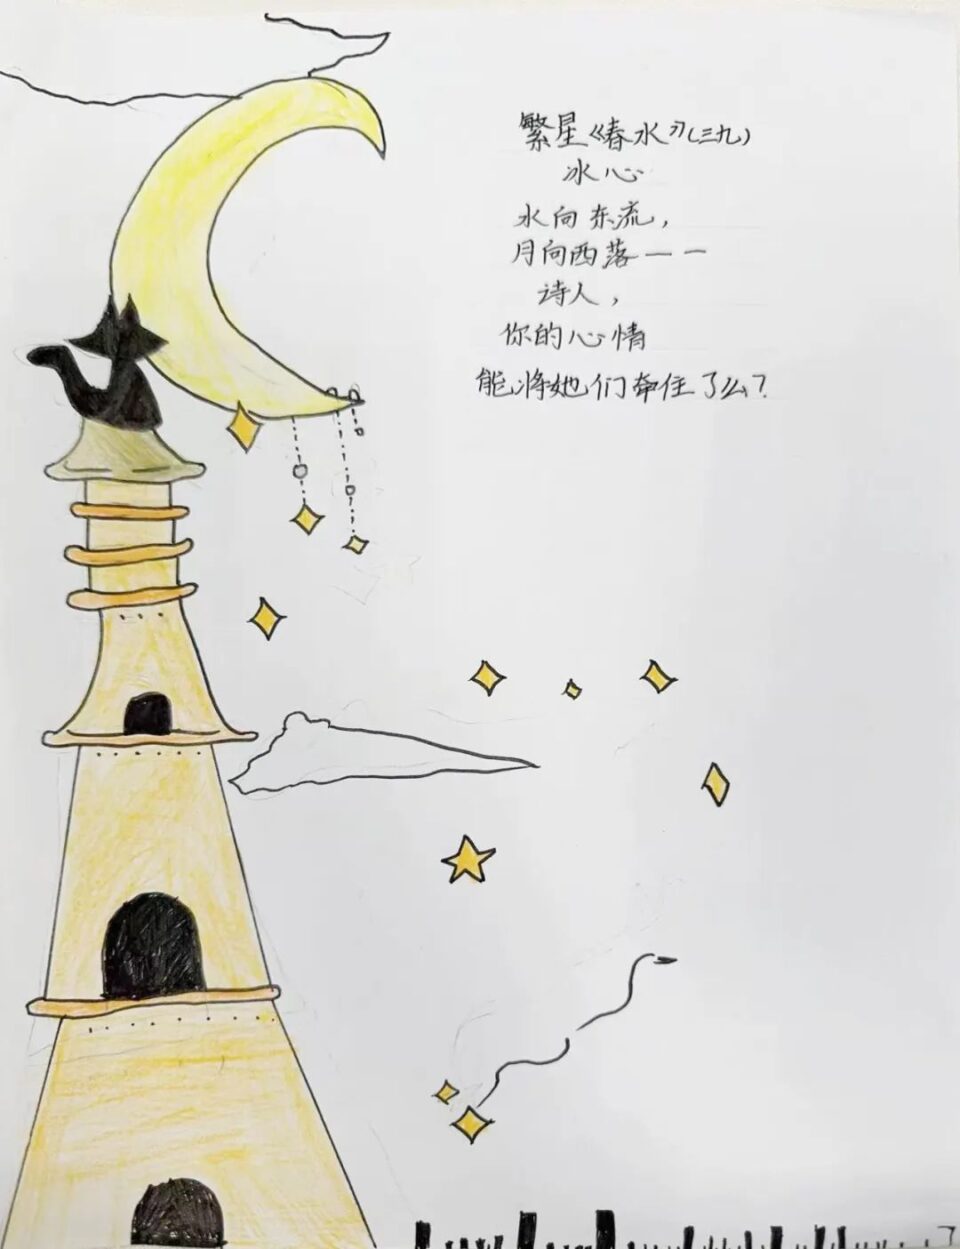 繁星《春水》(三九)
冰心
水向东流，
月向西落——
诗人，
你的心情
能将她们牵住了么？